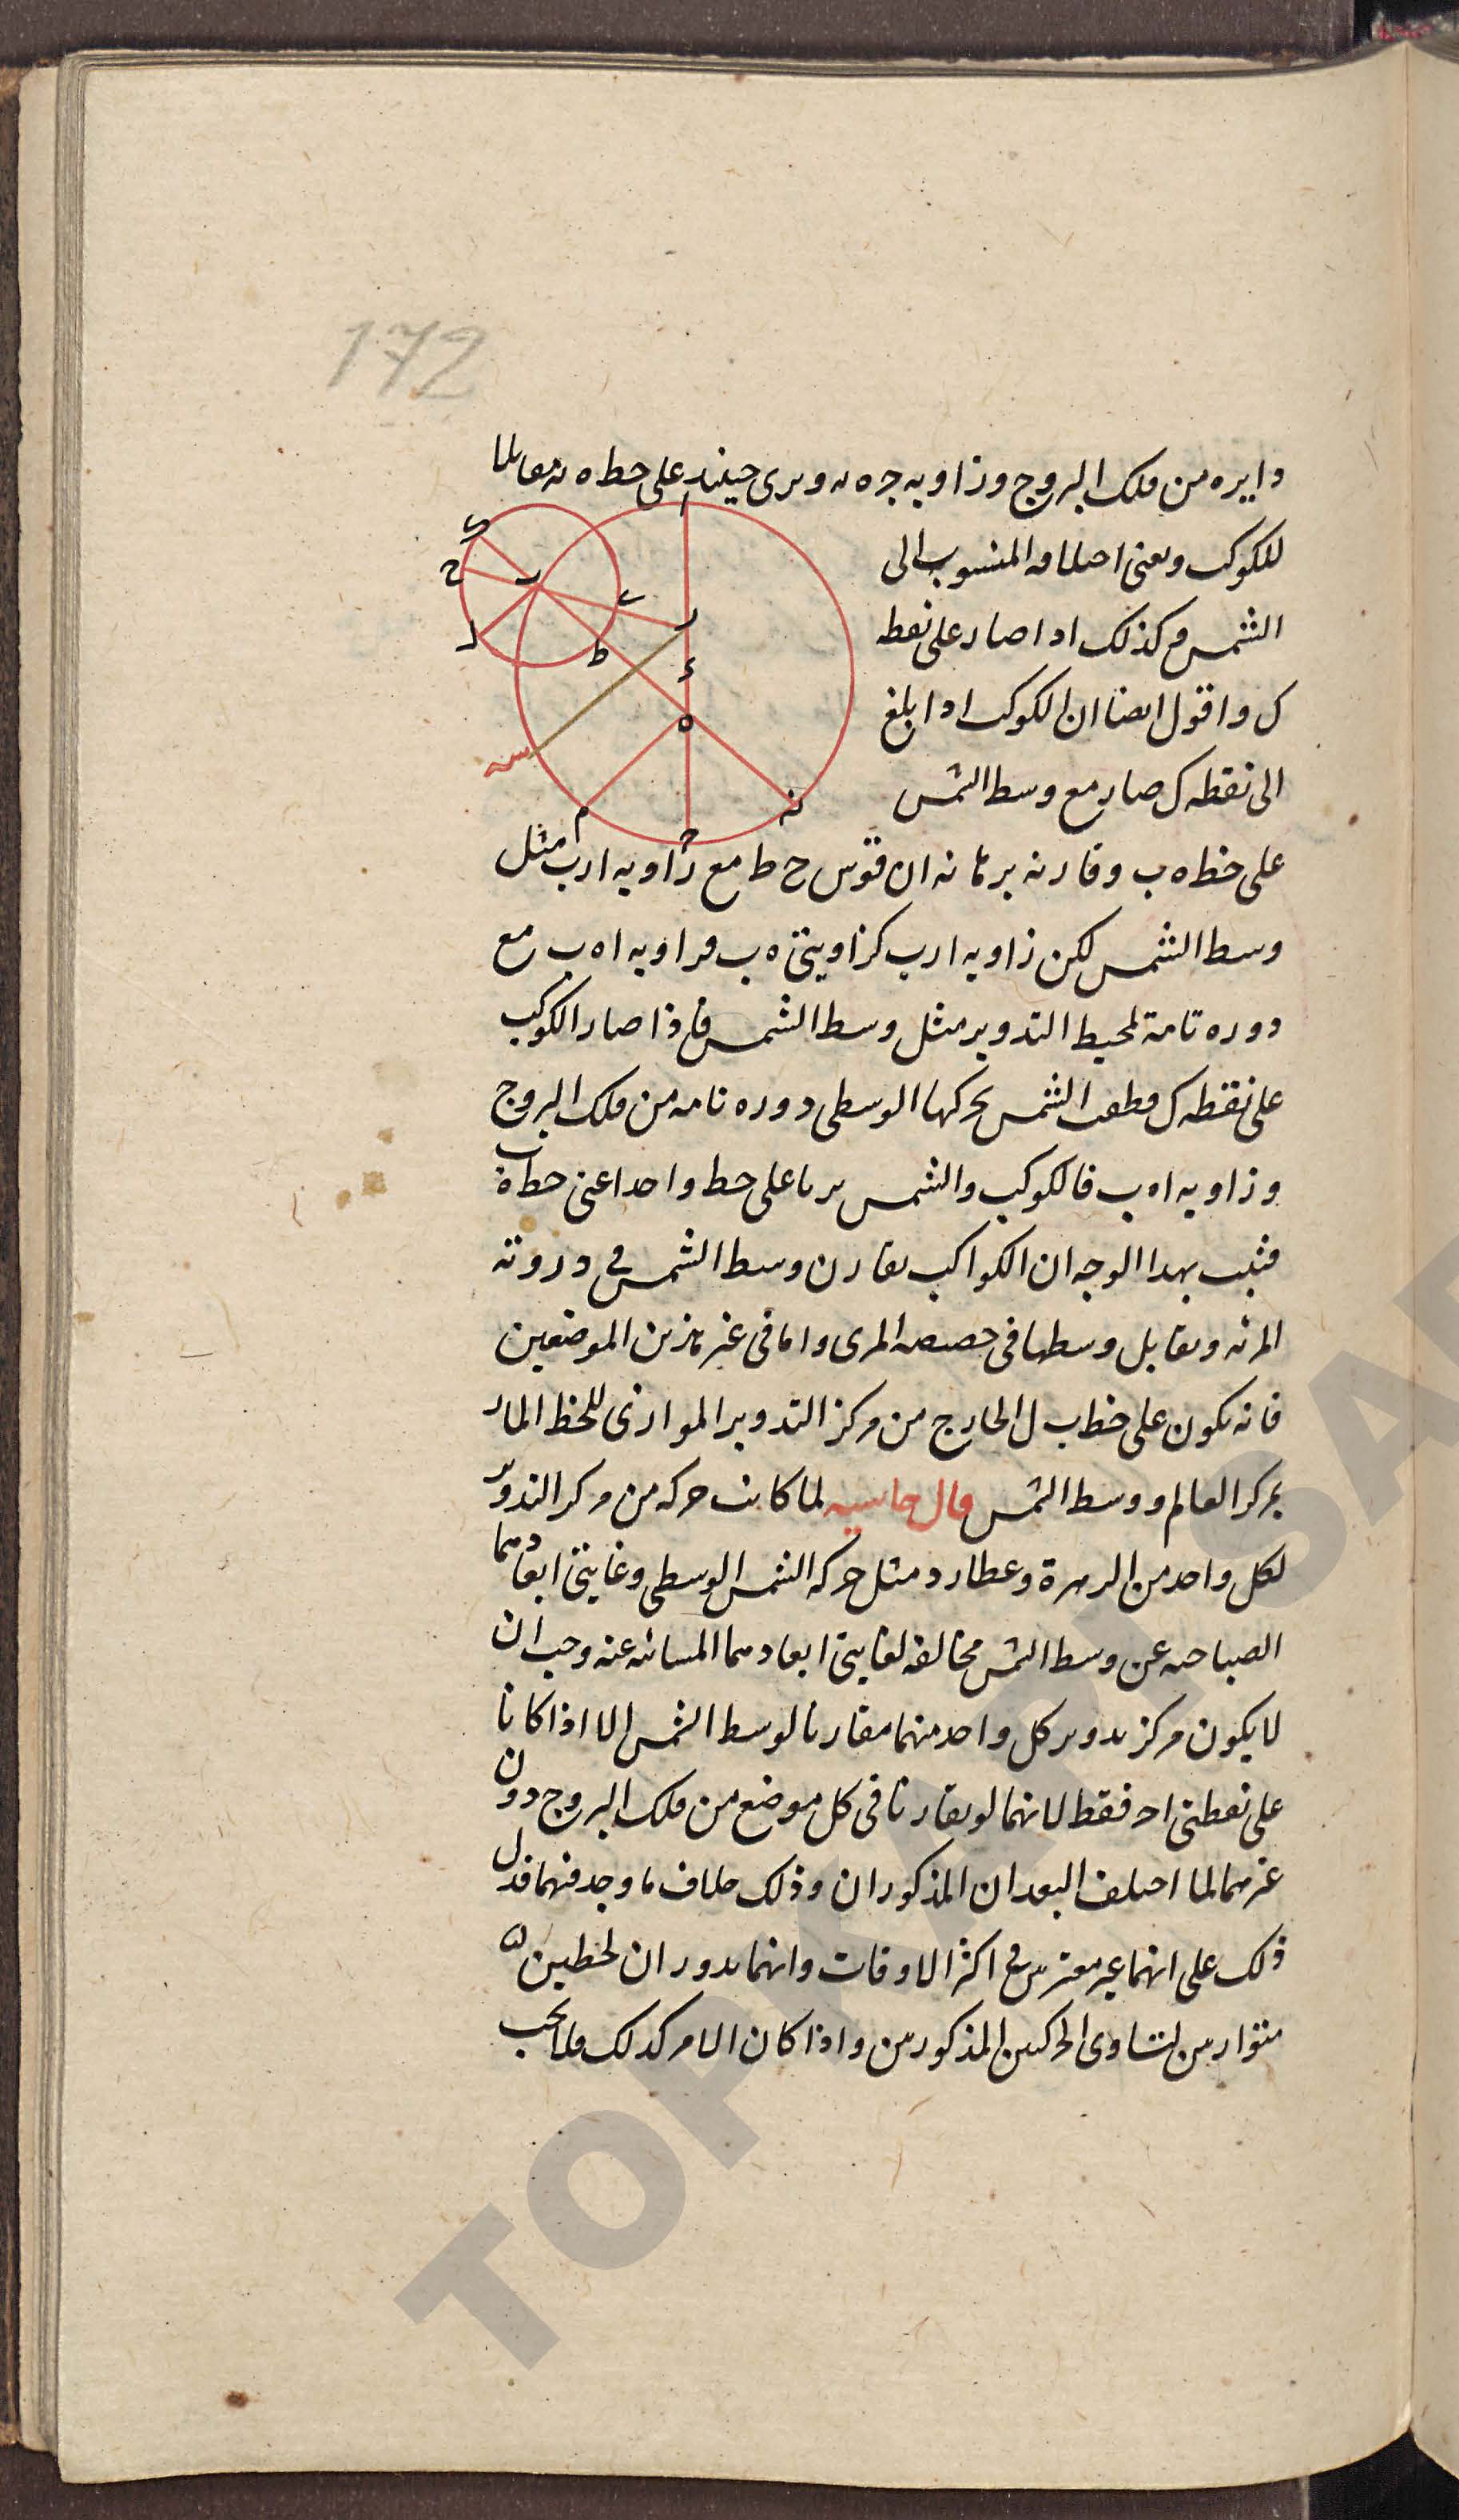 172
دايره من فلك البروج وزاويه جه‍ن ويرى حينئذ على خط ه‍ن مقابلا
للكوكب ويعنى اختلافه المنسوب الى
الشمس وكذلك اذا صار على نقطه
ك واقول ايضا ان الكوكب اذا بلغ
الى نقطه ك صار مع وسط الشمس
على خط ه‍ب وقارنه برهانه ان قوس ح ط مع زاويه ارب مثل
وسط الشمس لكن زاويه ارب كزاويتى ه‍ ب فزاويه اه‍ب مع
دوره تامة لمحيط التدوير مثل وسط الشمس فاذا صار الكوكب
على نقطه ك قطعت الشمس بحركتها الوسطى دوره تامه من فلك البروج
وزاويه اه‍ب فالكوكب والشمس يريا على خط واحد اعنى خط ه‍ب
فثبت بهذا الوجه ان الكواكب يقارن وسط الشمس فى ذروته
المرئه ويقابل وسطها فى حضيضه المرى واما فى غير هذين الموضعين
فانه يكون على خط ب ل الخارج من مركز التدوير الموازى للخط المار
بمركز العالم ووسط الشمس قال حاشيه لما كانت حركه من مركز التدوير
لكل واحد من الزهرة وعطارد مثل حركه الشمس الوسطى وغايتى ابعادهما
الصباحيه عن وسط الشمس مخالفه لغايتى ابعادهما المسائيه عنه وجب ان
لا يكون مركز تدوير كل واحد منهما مقارنا لوسط الشمس الا اذا كانا
على نقطتى اح فقط لانهما لو تقارنا فى كل موضع من فلك البروج دون
غيرهما لما اختلف البعدان المذكوران وذلك خلاف ما وجد فيهما فدل
ذلك على انهما غير مقترنين فى اكثر الاوقات وانهما يدوران لخطين
متوازيين لتساوى الحركتين المذكورتين واذا كان الامر كذلك فلا يجب
ا
ى
ح
ب
ل
ر
ط
ء
ه
سه
م
ح
ن
TOPKAPI SARA